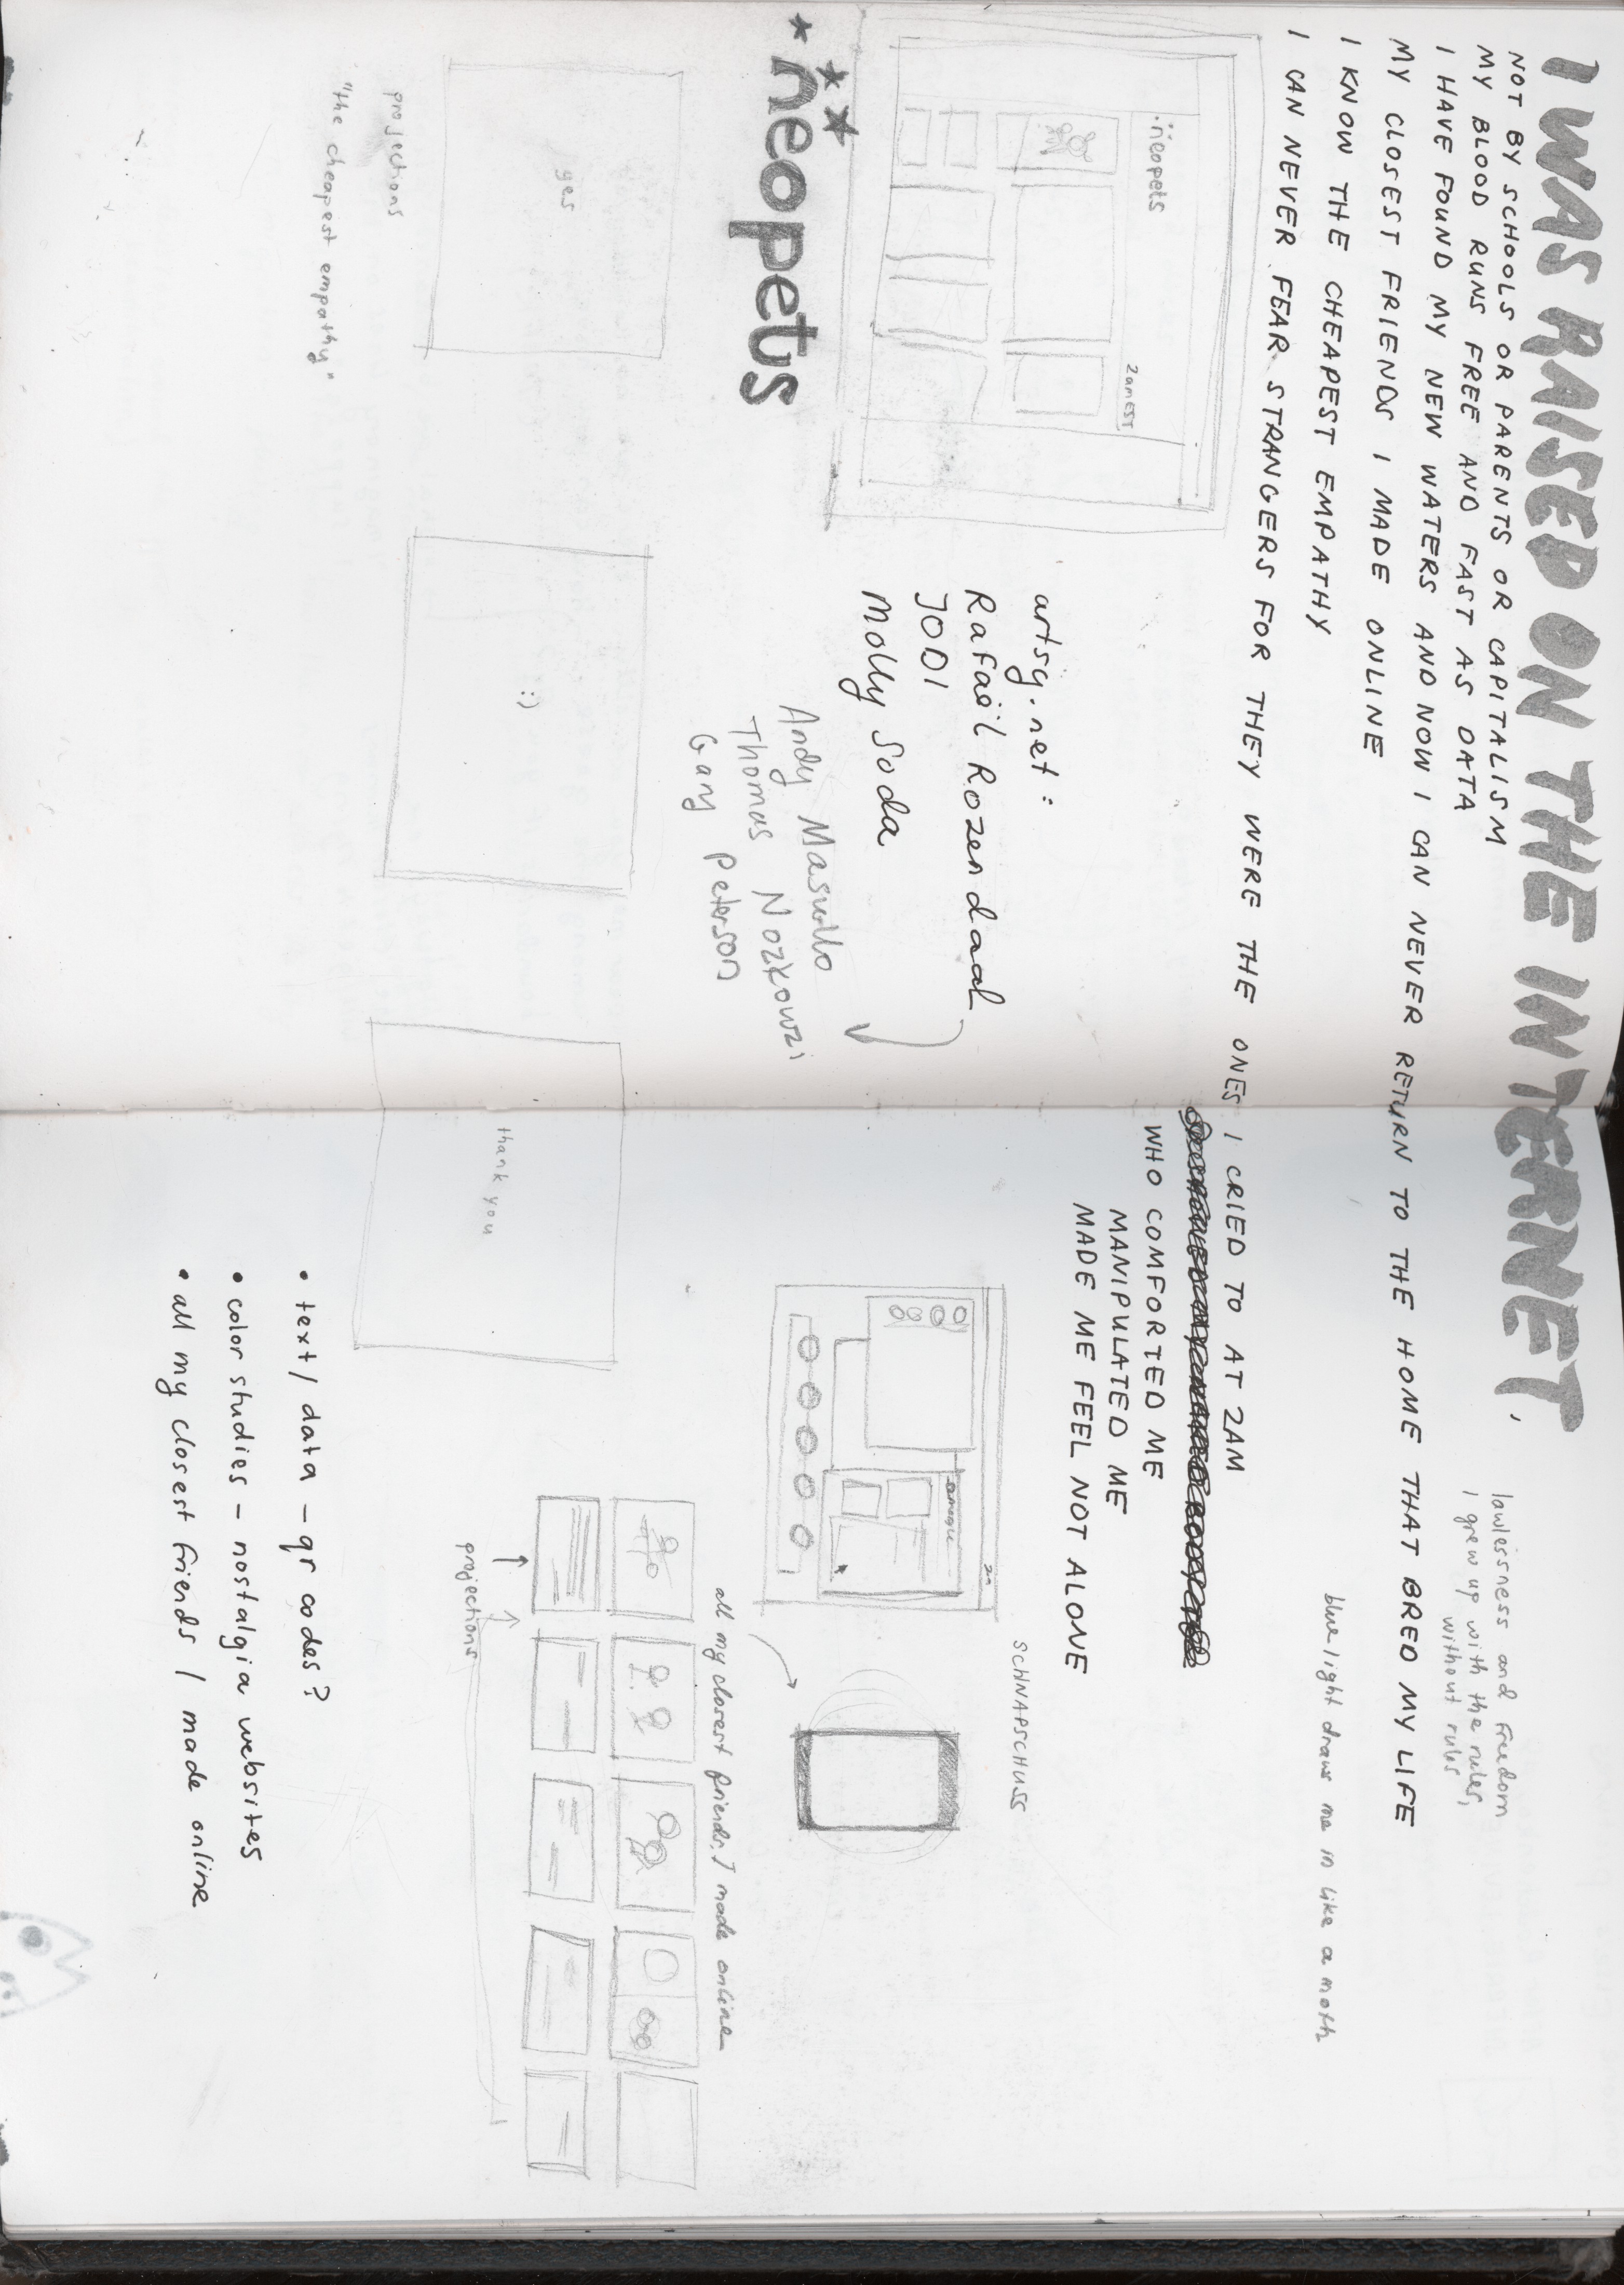 I WAS RAISED ON THE INTERNET,
NOT BY SCHOOLS OR PARENTS OR CAPITALISM
MY BLOOD RUNS FREE AND FAST AS DATA
I HAVE FOUND MY NEW WATERS AND NOW I CAN NEVER RETURN TO THE HOME THAT BRED MY LIFE
MY CLOSEST FRIENDS I MADE ONLINE
I KNOW THE CHEAPEST EMPATHY
I CAN NEVER FEAR STRANGERS FOR THEY WERE THE ONES I CRIED TO AT 2AM
WHO COMFORTED ME
MANIPULATED ME
MADE ME FEEL NOT ALONE
lawlessness and freedom
I grew up with the rules,
without rules
blue light draws me in like a moth
neopets
2am EST
neopets
artsy.net:
Rafaël Rozendaal
JODI
Molly Soda
Andy Masullo
Thomas Nozkowzi
Gary Peterson
yes
projections
"the cheapest empathy"
:)
thank you
SCHNAPSCHUSS
omegle
all my closest friends, I made online
projections
• text / data - qr codes?
• color studies - nostalgia websites
• all my closest friends I made online